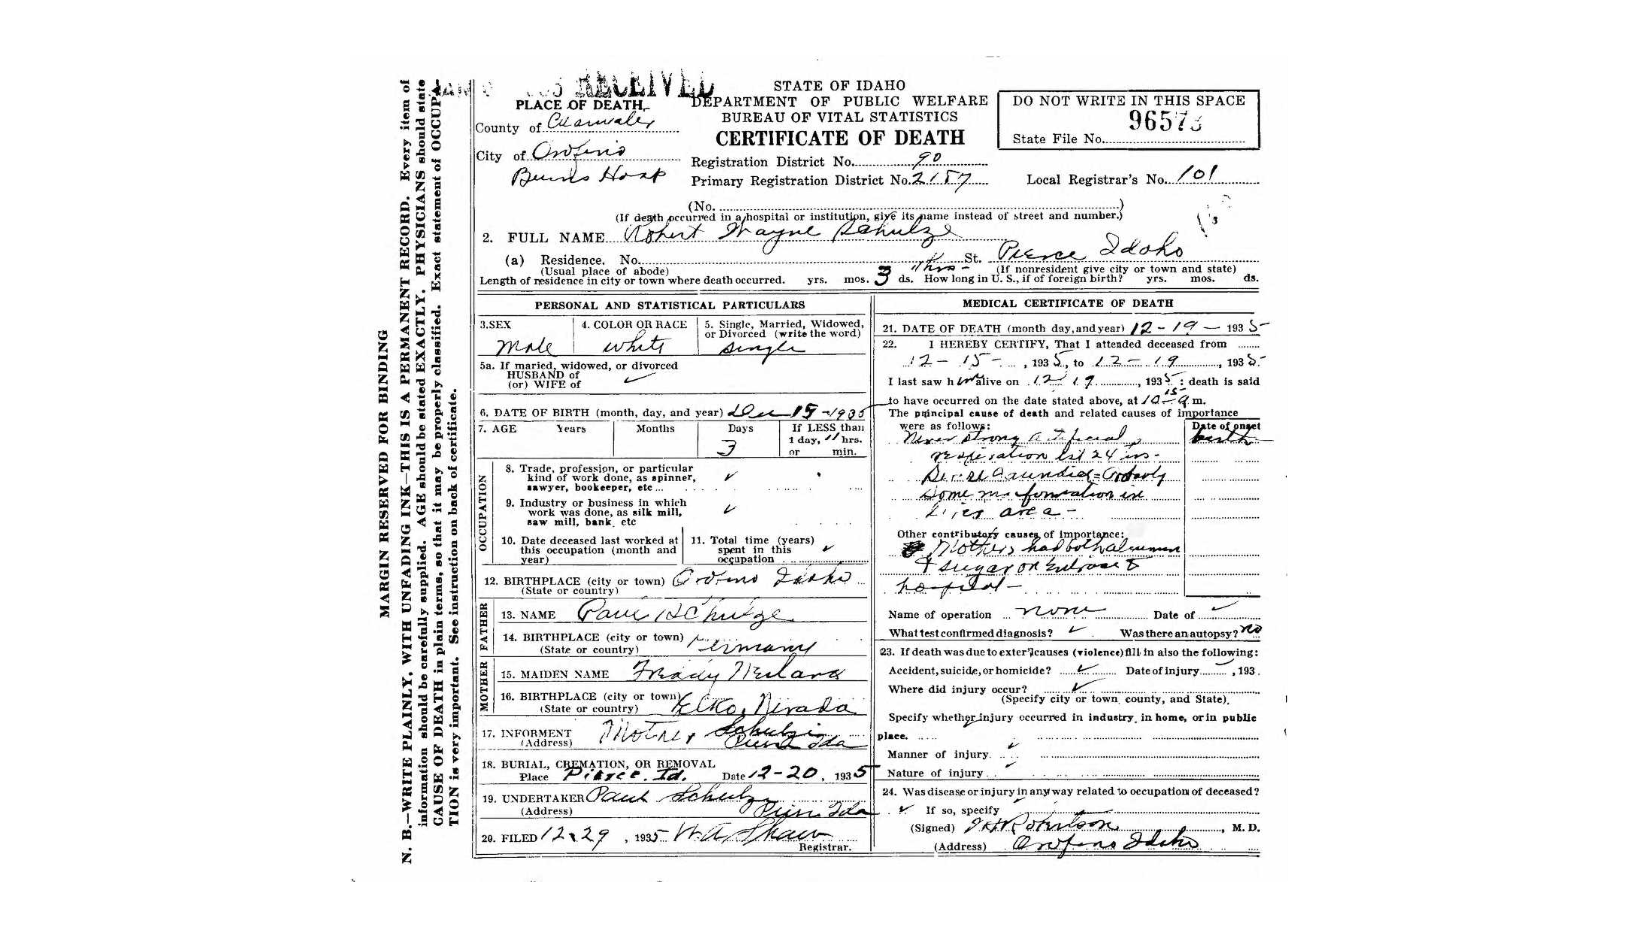 MARGIN RESERVED FOR BINDING
N. B.—WRITE PLAINLY, WITH UNFADING INK—THIS IS A PERMANENT RECORD. Every item of
information should be carefully supplied. AGE should be stated EXACTLY. PHYSICIANS should state
CAUSE OF DEATH in plain terms, so that it may be properly classified. Exact statement of OCCUPA-
TION is very important. See instruction on back of certificate.
RECEIVED
STATE OF IDAHO
DEPARTMENT OF PUBLIC WELFARE
BUREAU OF VITAL STATISTICS
CERTIFICATE OF DEATH
PLACE OF DEATH
County of Clearwater
City of Orofino
DO NOT WRITE IN THIS SPACE
96573
State File No.
Registration District No. 90
Primary Registration District No. 2157
Local Registrar's No. 101
(No.                )
(If death occurred in a hospital or institution, give its name instead of street and number.)
2. FULL NAME Robert Wayne Schulze
(a) Residence. No. St. Pierce Idaho
(Usual place of abode) (If nonresident give city or town and state)
Length of residence in city or town where death occurred. yrs. mos. 3 ds. How long in U. S., if of foreign birth? yrs. mos. ds.
PERSONAL AND STATISTICAL PARTICULARS
3.SEX Male
4. COLOR OR RACE white
5. Single, Married, Widowed,
or Divorced (write the word)
single
5a. If maried, widowed, or divorced
HUSBAND of
(or) WIFE of
6. DATE OF BIRTH (month, day, and year) Dec 15-1935
7. AGE Years Months Days If LESS than
3 1 day, 11 hrs.
or min.
OCCUPATION
8. Trade, profession, or particular
kind of work done, as spinner,
sawyer, bookeeper, etc
9. Industry or business in which
work was done, as silk mill,
saw mill, bank, etc
10. Date deceased last worked at
this occupation (month and
year)
11. Total time (years)
spent in this
occupation
12. BIRTHPLACE (city or town) Orofino Idaho
(State or country)
FATHER
13. NAME Paul Schulze
14. BIRTHPLACE (city or town)
(State or country) Germany
MOTHER
15. MAIDEN NAME
16. BIRTHPLACE (city or town) Elko, Nevada
(State or country)
17. INFORMENT Mother Schulze
(Address) Pierce Ida
18. BURIAL, CREMATION, OR REMOVAL
Place Pierce. Id. Date 12-20, 1935
19. UNDERTAKER Paul Schulze
(Address) Pierce Ida
20. FILED 12-29, 1935 W.A. Shaw
Registrar.
MEDICAL CERTIFICATE OF DEATH
21. DATE OF DEATH (month day, and year) 12-19-1935
22. I HEREBY CERTIFY, That I attended deceased from
12-15-, 1935, to 12-19, 1935.
I last saw him alive on 12 19, 1935: death is said
to have occurred on the date stated above, at 10 15 a m.
The principal cause of death and related causes of importance
were as follows: Date of onset
Never strong artificial birth
respiration 1st 24 hrs-
jaundice-Probably
some malformation in
liver area-
Other contributory causes of importance:
Mothers had both albumen
+ sugar on entrance to
hospital-
Name of operation none Date of
What test confirmed diagnosis? Was there an autopsy? no
23. If death was due to exter'l causes (violence) fill in also the following:
Accident, suicide, or homicide? Date of injury , 193.
Where did injury occur?
(Specify city or town, county, and State).
Specify whether injury occurred in industry, in home, or in public
place.
Manner of injury.
Nature of injury
24. Was disease or injury in any way related to occupation of deceased?
If so, specify
(Signed) Robertson, M. D.
(Address) Orofino Idaho